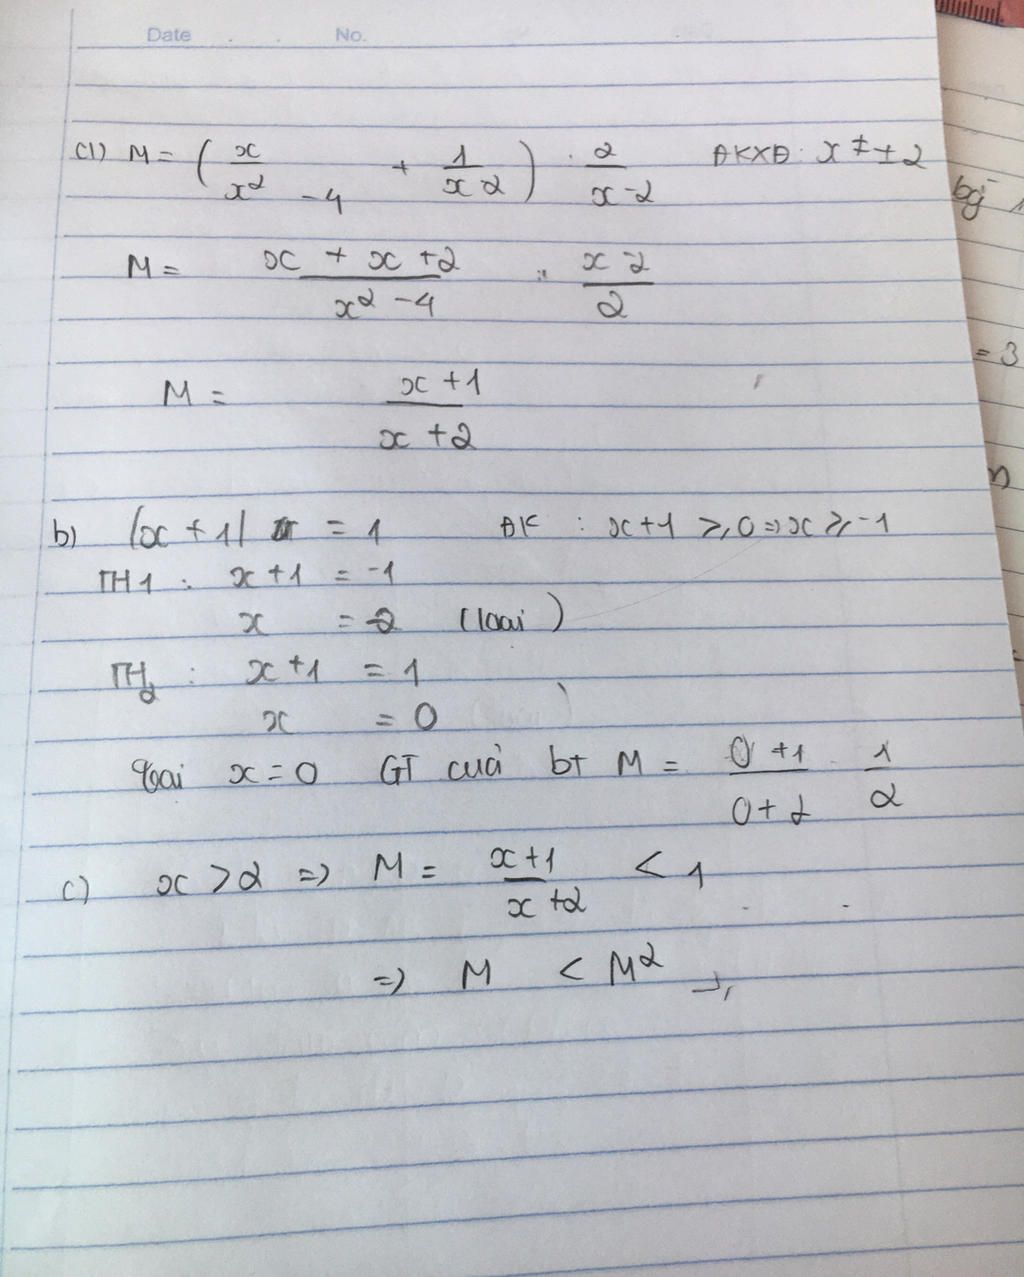 Date . . No.
a) M = ( x/x² - 4 + 1/x-2 ) : 2/x-2 ĐKXĐ: x ≠ ± 2
bg
M = x + x + 2/x² - 4 . x-2/2
= 3
M = x + 1/x + 2
b) |x + 1| = 1 ĐK : x + 1 ⩾ 0 => x ⩾ -1
TH1 : x + 1 = -1
x = -2 (loại)
TH2 : x + 1 = 1
x = 0
Tại x = 0 GT của bt M = 0 + 1/0 + 2 = 1/2
c) x > 2 => M = x+1/x+2 < 1
=> M < M²